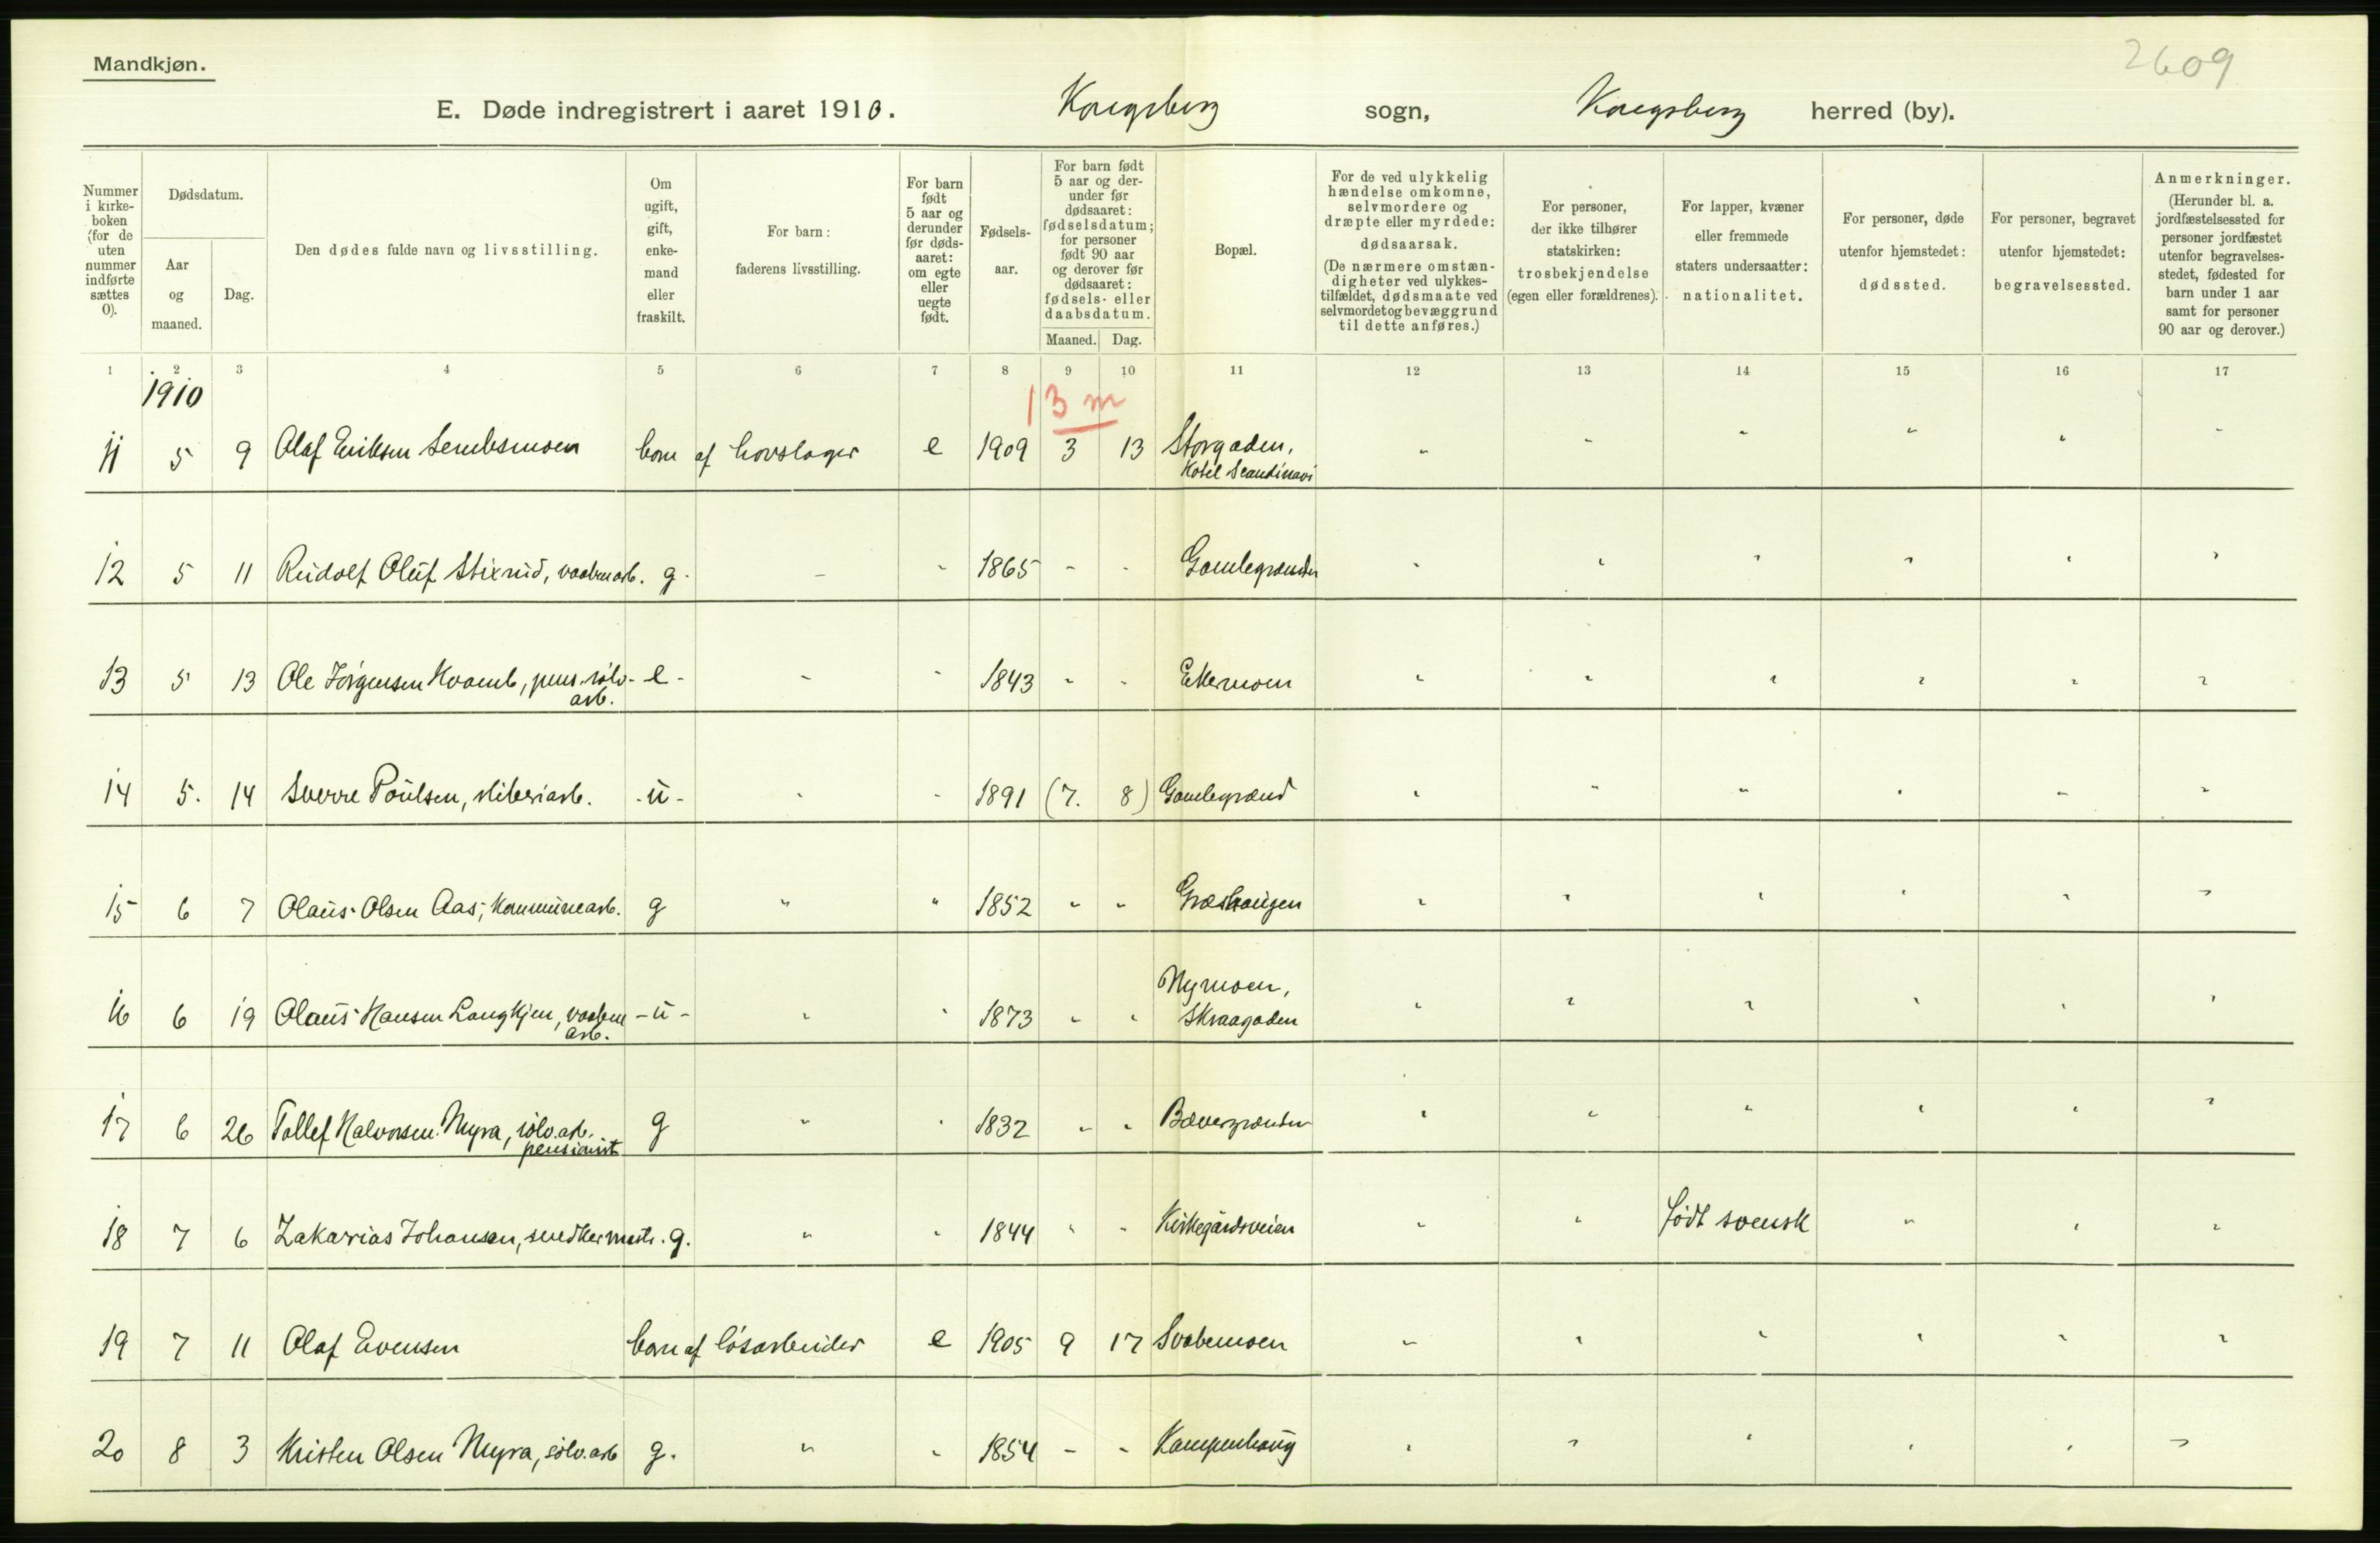 Mandkjøn.
2609
E. Døde indregistrert i aaret 1910. Kongsberg sogn, Kongsberg herred (by).
Nummer i kirke-boken (for de uten nummer indførte sættes 0).
Dødsdatum.
Aar og maaned.
Dag.
Den dødes fulde navn og livsstilling.
Om ugift, gift, enke-mand eller fraskilt.
For barn: faderens livsstilling.
For barn født 5 aar og derunder før døds-aaret: om egte eller uegte født.
Fødsels-aar.
For barn født 5 aar og der-under før dødsaaret: fødselsdatum; for personer født 90 aar og derover før dødsaaret: fødsels- eller daabsdatum.
Maaned. Dag.
Bopæl.
For de ved ulykkelig hændelse omkomne, selvmordere og dræpte eller myrdede: dødsaarsak. (De nærmere omstæn-digheter ved ulykkes-tilfældet, dødsmaate ved selvmordet og bevæggrund til dette anføres.)
For personer, der ikke tilhører statskirken: trosbekjendelse (egen eller forældrenes).
For lapper, kvæner eller fremmede staters undersaatter: nationalitet.
For personer, døde utenfor hjemstedet: dødssted.
For personer, begravet utenfor hjemstedet: begravelsessted.
Anmerkninger. (Herunder bl. a. jordfæstelsessted for personer jordfæstet utenfor begravelses-stedet, fødested for barn under 1 aar samt for personer 90 aar og derover.)
1 2 3 4 5 6 7 8 9 10 11 12 13 14 15 16 17
1910
13 m
11 5 9 Olaf Eriksen barn af hovslager e 1909 3 13 Storgaden,
Hotel Scandinavi
12 5 11 Rudolf Oluf Stixrud, vaabenarb. g. - - 1865 - - Gamlegrænden
13 5 13 Ole Jørgensen Kvarnb, pens. sølv- e - - - 1843 - - Ekermoen
arb.
14 5. 14 Sverre Poulsen, sliberiarb. - u - - - 1891 (7. 8) Gamlegrænd
15 6 7 Olaus Olsen Aas, Kommunearb. g " " 1852 " " Græshaugen
Nymoen,
16 6 19 Olaus Hansen Langkjen, vaaben - u - " " 1873 " " Skraagaden
arb.
17 6 26 Tollef Halvorsen Myra, sølv.arb. g " " 1832 " " Bævergrænden
pensionist
18 7 6 Zakarias Johansen, snedkermestr. g. " " 1844 " " Kirkegårdsveien født svensk
19 7 11 Olaf Evensen barn af løsarbeider e 1905 9 17 Svabemoen
20 8 3 Kristen Olsen Myra, sølv.arb g. " " 1854 - - Kampenhaug